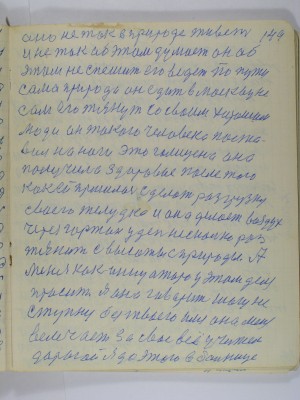 его не так в природе живет 149
и не так об этом думает он об
этим не спешит его ведет по пути
сама природа он едит в Москву не
сам его тянут со своим хорошим
люди он такого человека поста-
вил на ноги это женщина она
получила здоровие после того
как ей пришлось сделать разгрузку
своего желудка и она делает воздух
через гортань у день несколько раз
тянит с высоты с природы А
меня как у этом деле
просит. А она говорит я не
ступну
величает За свое всё учител
дарогой Я до этого в больнице